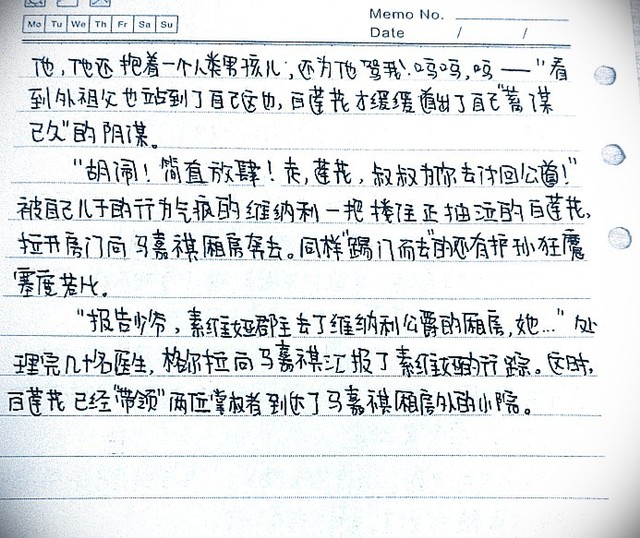 Memo No.
Mo Tu We Th Fr Sa Su
Date / /
他，他还抱着一个人类男孩儿，还为他骂我！呜呜，呜——"看
到外祖父也站到了自己这边，白莲花才缓缓道出了自己"蓄谋
已久"的阴谋。
"胡闹！简直放肆！走，莲花，叔叔为你去讨回公道！"
被自己儿子的行为气疯的维纳利一把搂住正抽泣的白莲花，
拉开房门向马嘉祺厢房奔去。同样"踢门而去"的还有护孙狂魔
塞度若比。
"报告少爷，素维娅郡主去了维纳利公爵的厢房，她..."处
理完几十名医生，格尔拉向马嘉祺汇报了素维娅的行踪。这时，
白莲花已经"带领"两位掌权者到达了马嘉祺厢房外的小院。